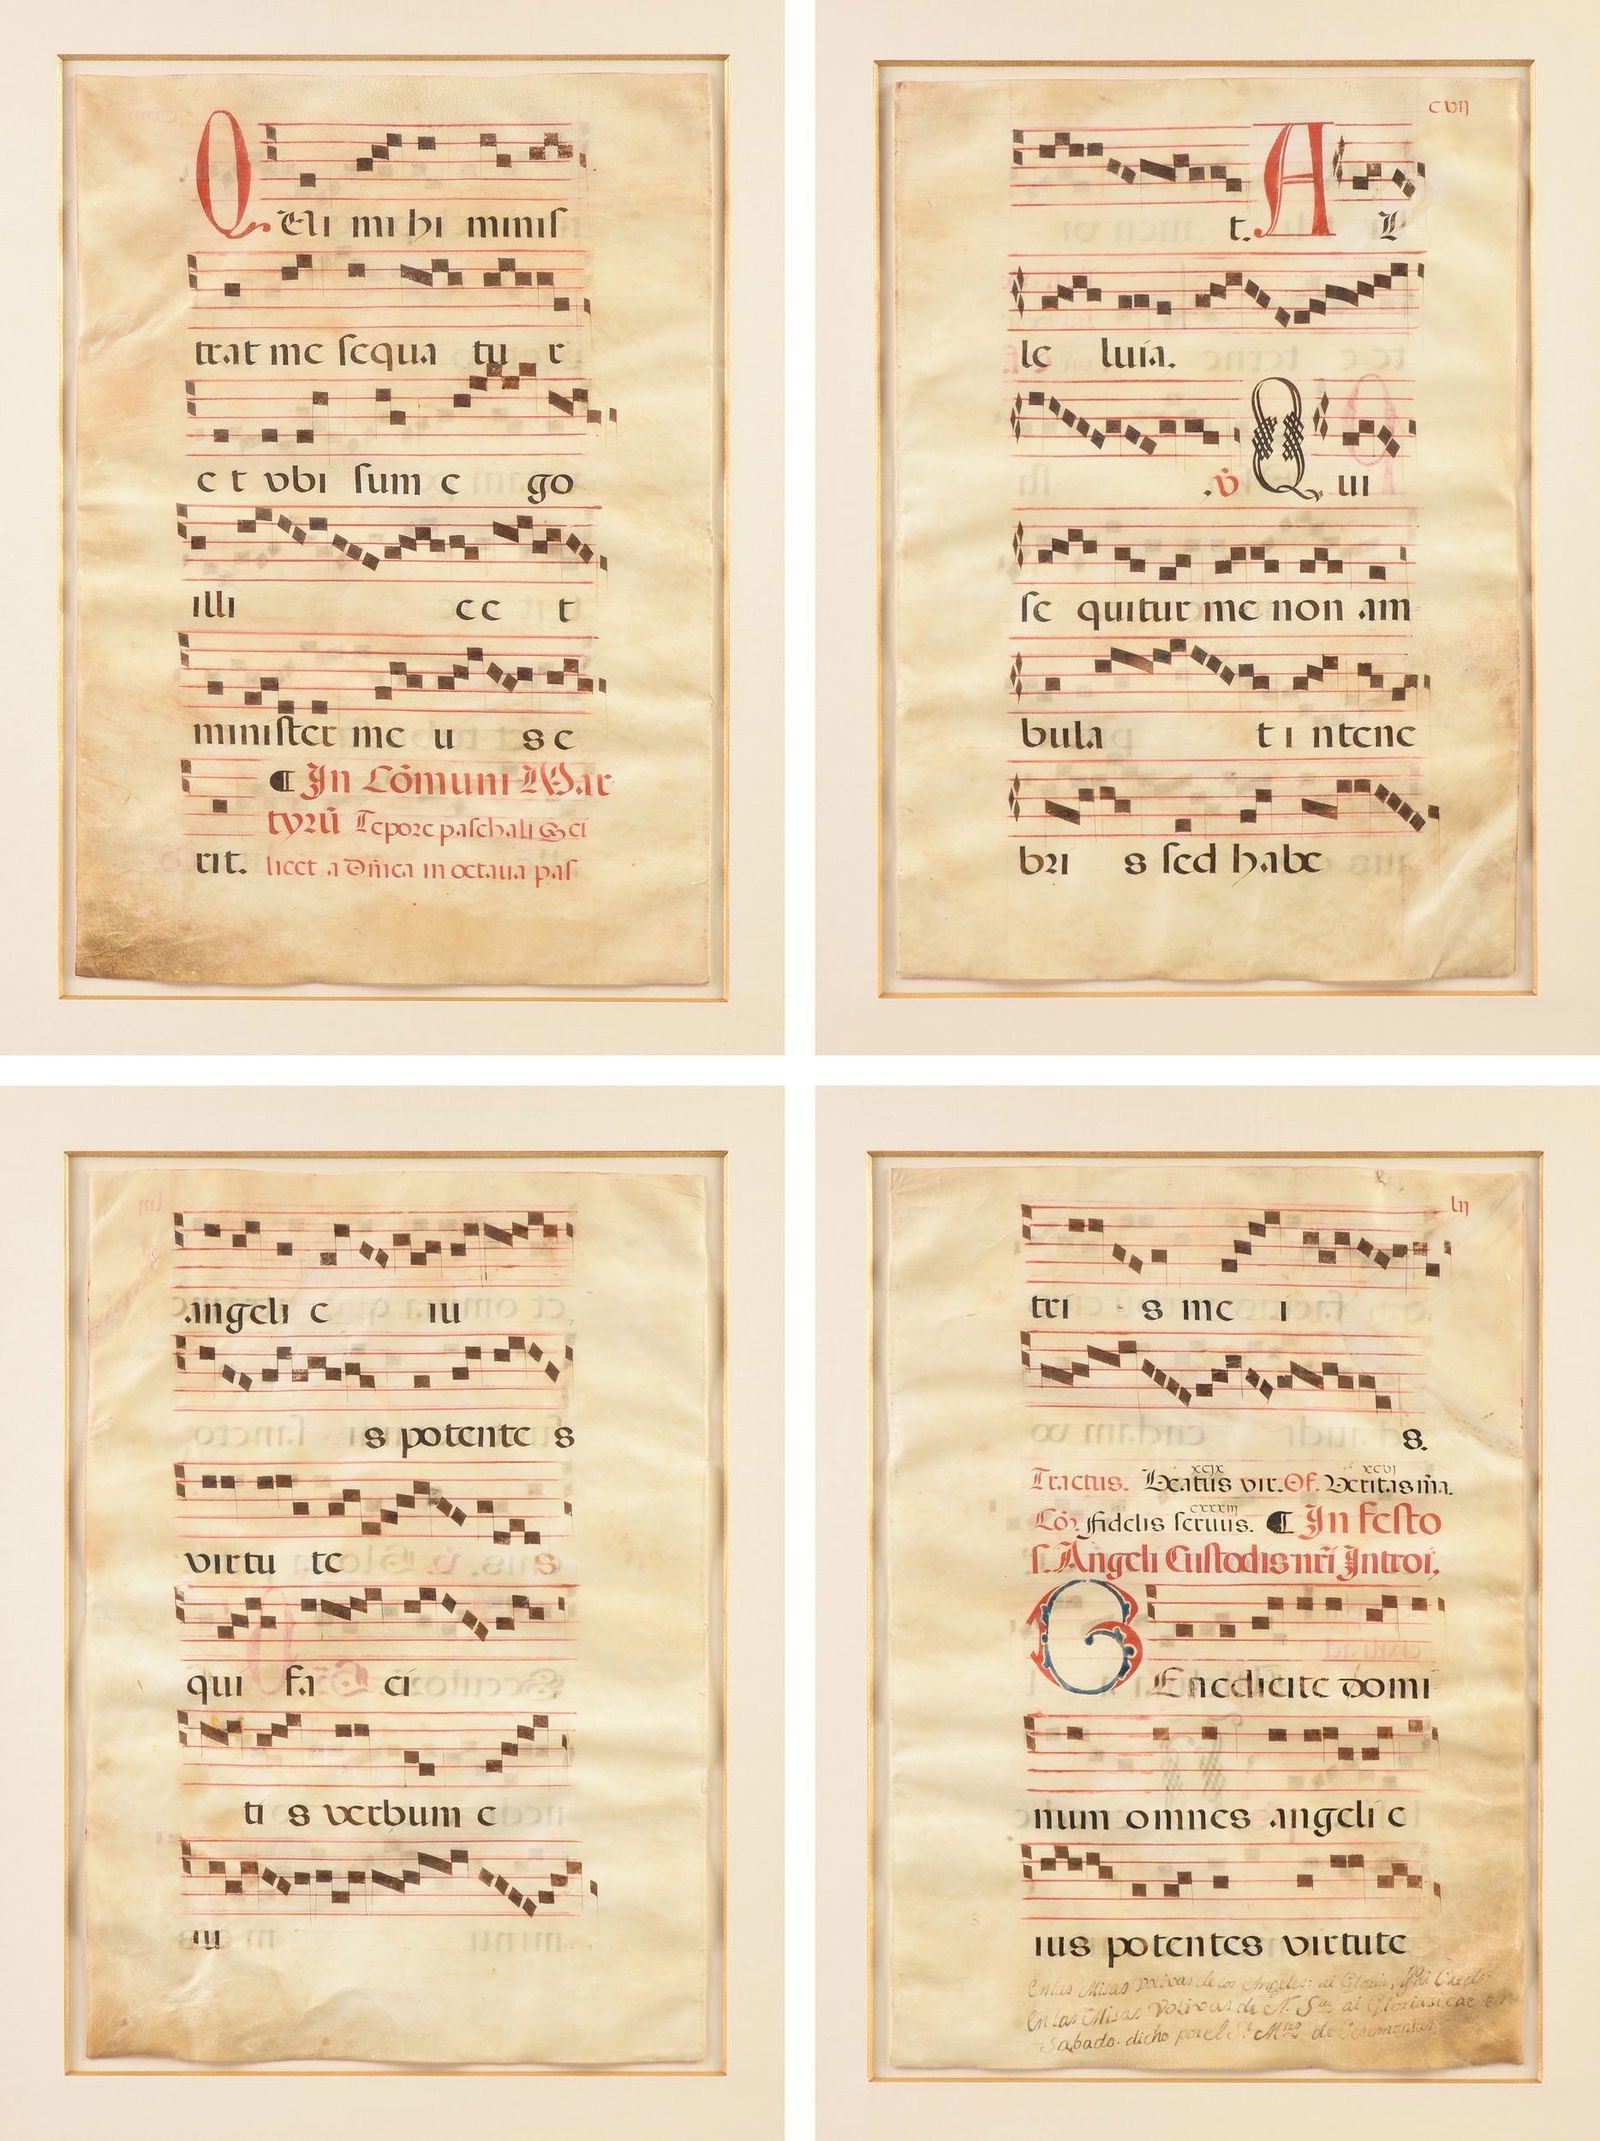 QUi mi hi minis
trat me sequa tu r
e t vbi sum e go
illi e e t
minister me u s e
¶ In Cōmuni Mar
tyrū Tēpore paschali & ei
rit. licet a Dn̄ica in octaua pas
cvij
t. A L
le luia.
.v̇ Q ui
se quitur me non am
bula t i ntene
bri s sed habe
angeli e iu
s potente s
virtu te s
qui fa ci
ti s verbum e
iu
lij
tri s me i
s.
xcjx xcvj
Tractus. Beatus vir. Of. Veritas m̄a.
cxxxiij
Cō. fidelis seruus. ¶ In festo
s. Angeli Custodis nr̄i Introi.
BEnedicite domi
num omnes angeli e
ius potentes virtute
En las Misas votivas de los Angeles ai Gloria,
En las Misas Votivas de N. Sra ai Gloria
Sabado. dicho por el Sr. Mro de Ceremonias